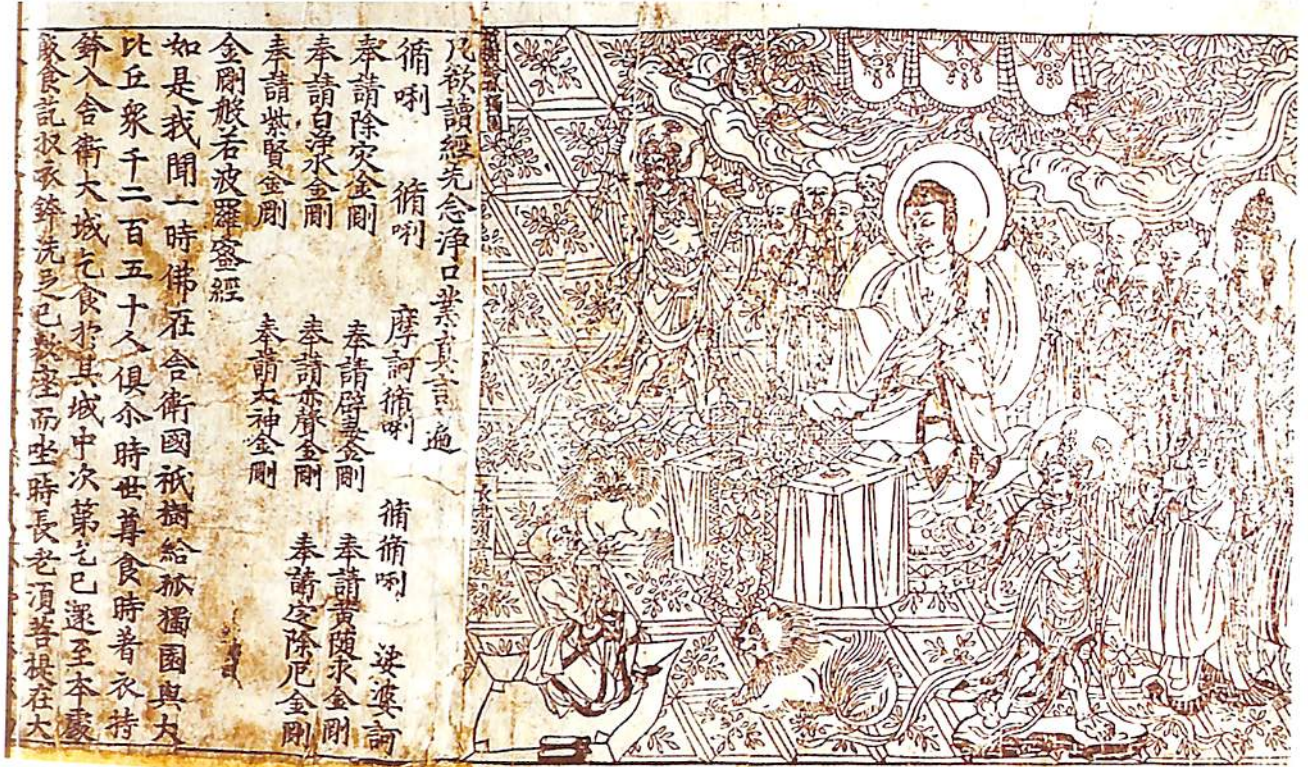 凡欲讀經先念淨口業真言一遍
脩唎 脩唎 摩訶脩唎 脩脩唎 娑婆訶
奉請除灾金剛 奉請辟毒金剛 奉請黃隨求金剛
奉請白淨水金剛 奉請赤聲金剛 奉請定除厄金剛
奉請紫賢金剛 奉請大神金剛
金剛般若波羅蜜經
如是我聞一時佛在舍衛國祇樹給孤獨園與大
比丘眾千二百五十人俱尒時世尊食時著衣持
鉢入舍衛大城乞食於其城中次第乞已還至本處
飯食訖收衣鉢洗足已敷座而坐時長老須菩提在大